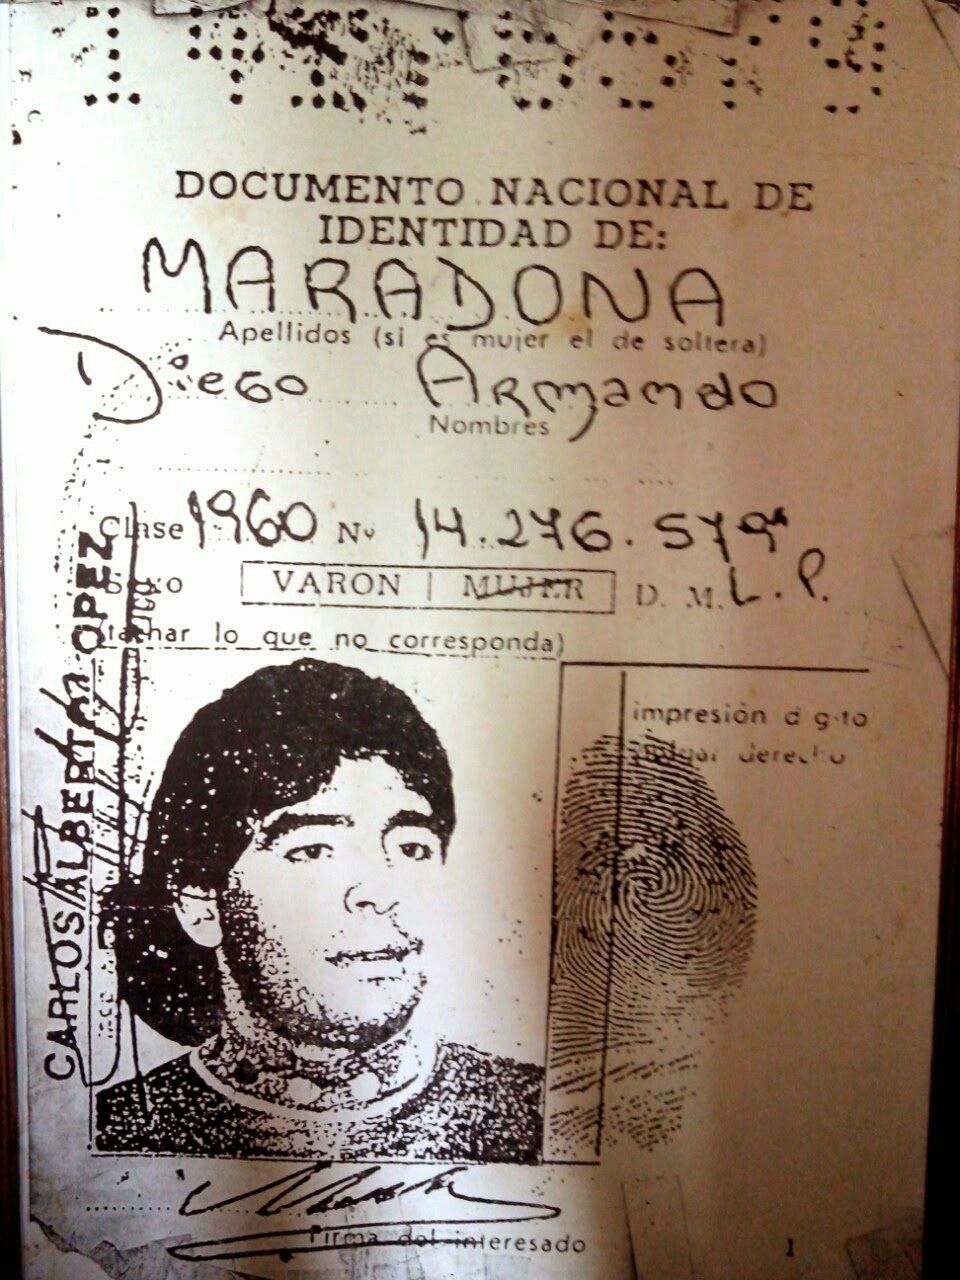 DOCUMENTO NACIONAL DE
IDENTIDAD DE:
MARADONA
Apellidos (si es mujer el de soltera)
Diego Armando
Nombres
Clase 1960 Nº 14.276.579
VARON | MUJER D. M. L. P.
(tachar lo que no corresponda)
impresión d g to
derecho
CARLOS ALBERTO LOPEZ
Firma del interesado
1